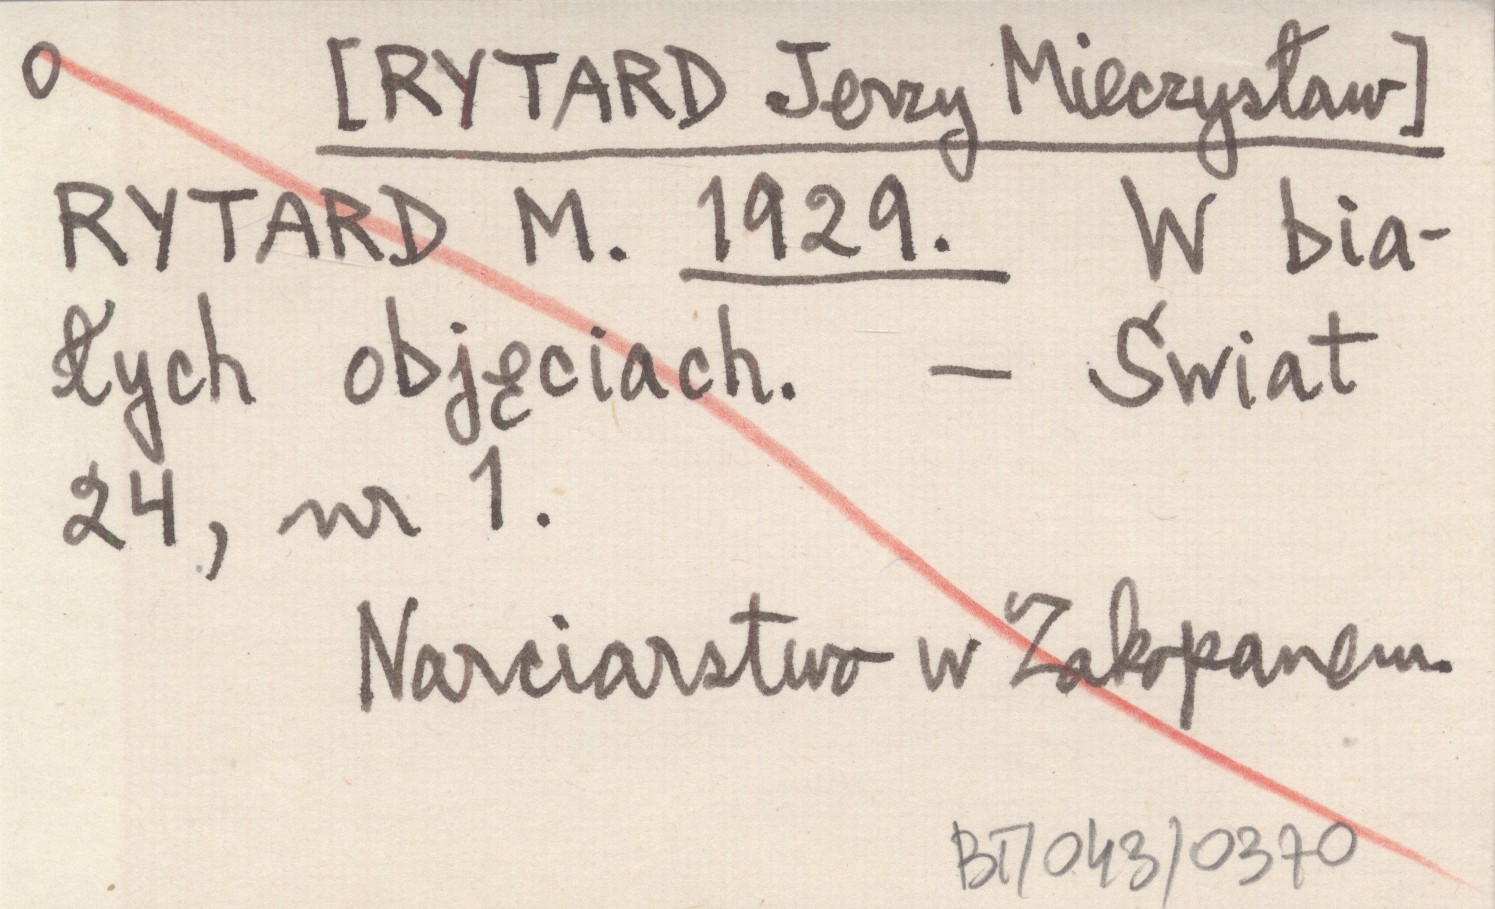 O [RYTARD Jerzy Mieczysław]
RYTARD M. 1929. W bia-
łych objęciach. — Świat
24, nr 1.
Narciarstwo w Zakopanem.
BT/043/0370